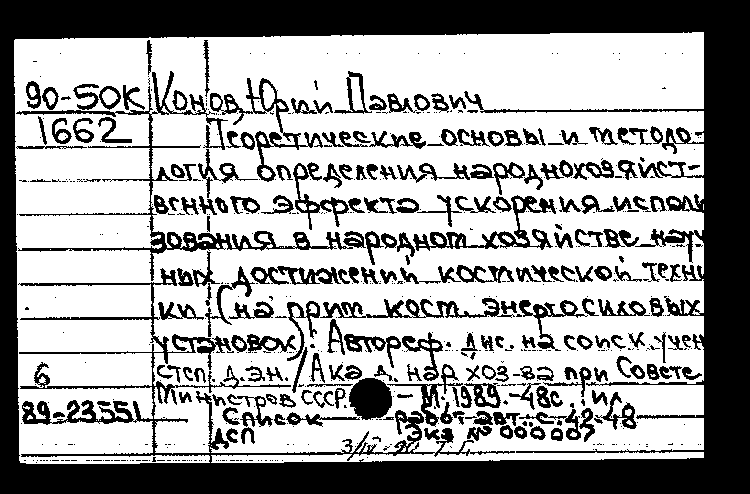 90-50К Конов, Юрий Павлович
1662 Теоретические основы и методо-
логия определения народнохозяйст-
венного эффекта ускорения исполь
зования в народном хозяйстве науч
ных достижений космической техни
ки (на прим. косм. энергосиловых
установок): Автореф. дис. на соиск. учен
6 степ. д.э.н. / Акад. нар. хоз-ва при Совете
Министров СССР. – М., 1989.-48с.: ил.
89-23551 Список работ авт.: с. 42-48
ДСП Экз № 000007
3/IV-90 Т.Г.